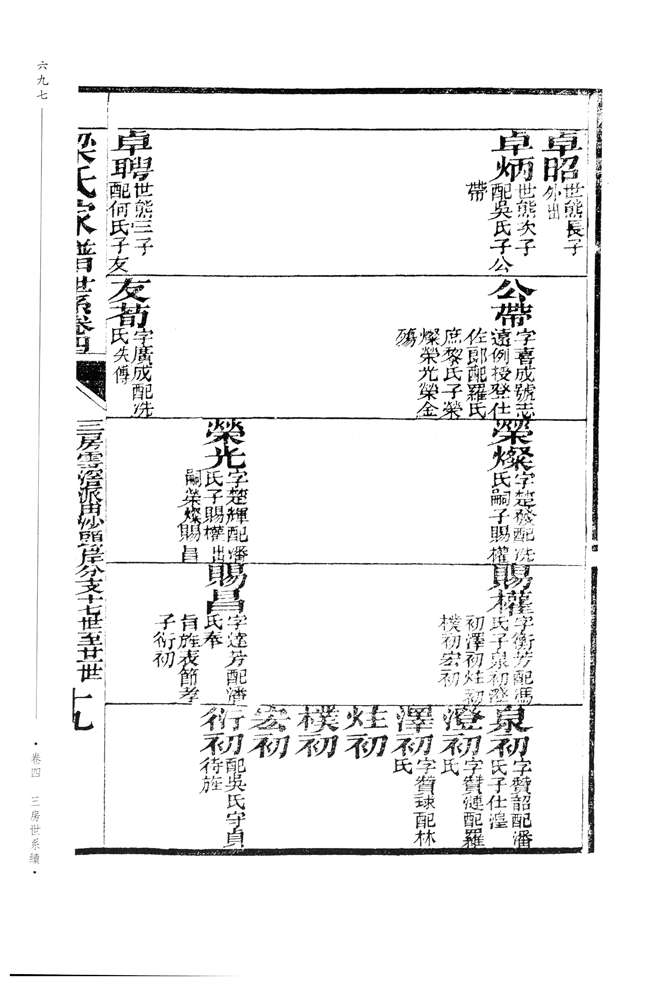 卓昭世熊長子
外出
卓炳世熊次子
配吳氏子公
帶
卓聘世熊三子
配何氏子友
公帶字喜成號志
遠例授登仕
佐郎配羅氏
庶黎氏子榮
燦榮光榮金
殤
友荀字廣成配冼
氏失傳
榮燦字楚發配冼
氏嗣子賜權
榮光字楚輝配潘
氏子賜權出
嗣榮燦賜昌
賜權字衡芳配馮
氏子泉初澄
初澤初炷初
樸初宏初
賜昌字達芳配潘
氏奉
旨旌表節孝
子衍初
泉初字贊韶配潘
氏子仕湟
澄初字贊漣配羅
氏
澤初字贊球配林
氏
炷初
樸初
宏初
衍初配吳氏守貞
待旌
梁氏家譜世系卷四
三房雲滘派由沙頭官岸分支十七世至廿一世
十九
六九七
·卷四 三房世系續·